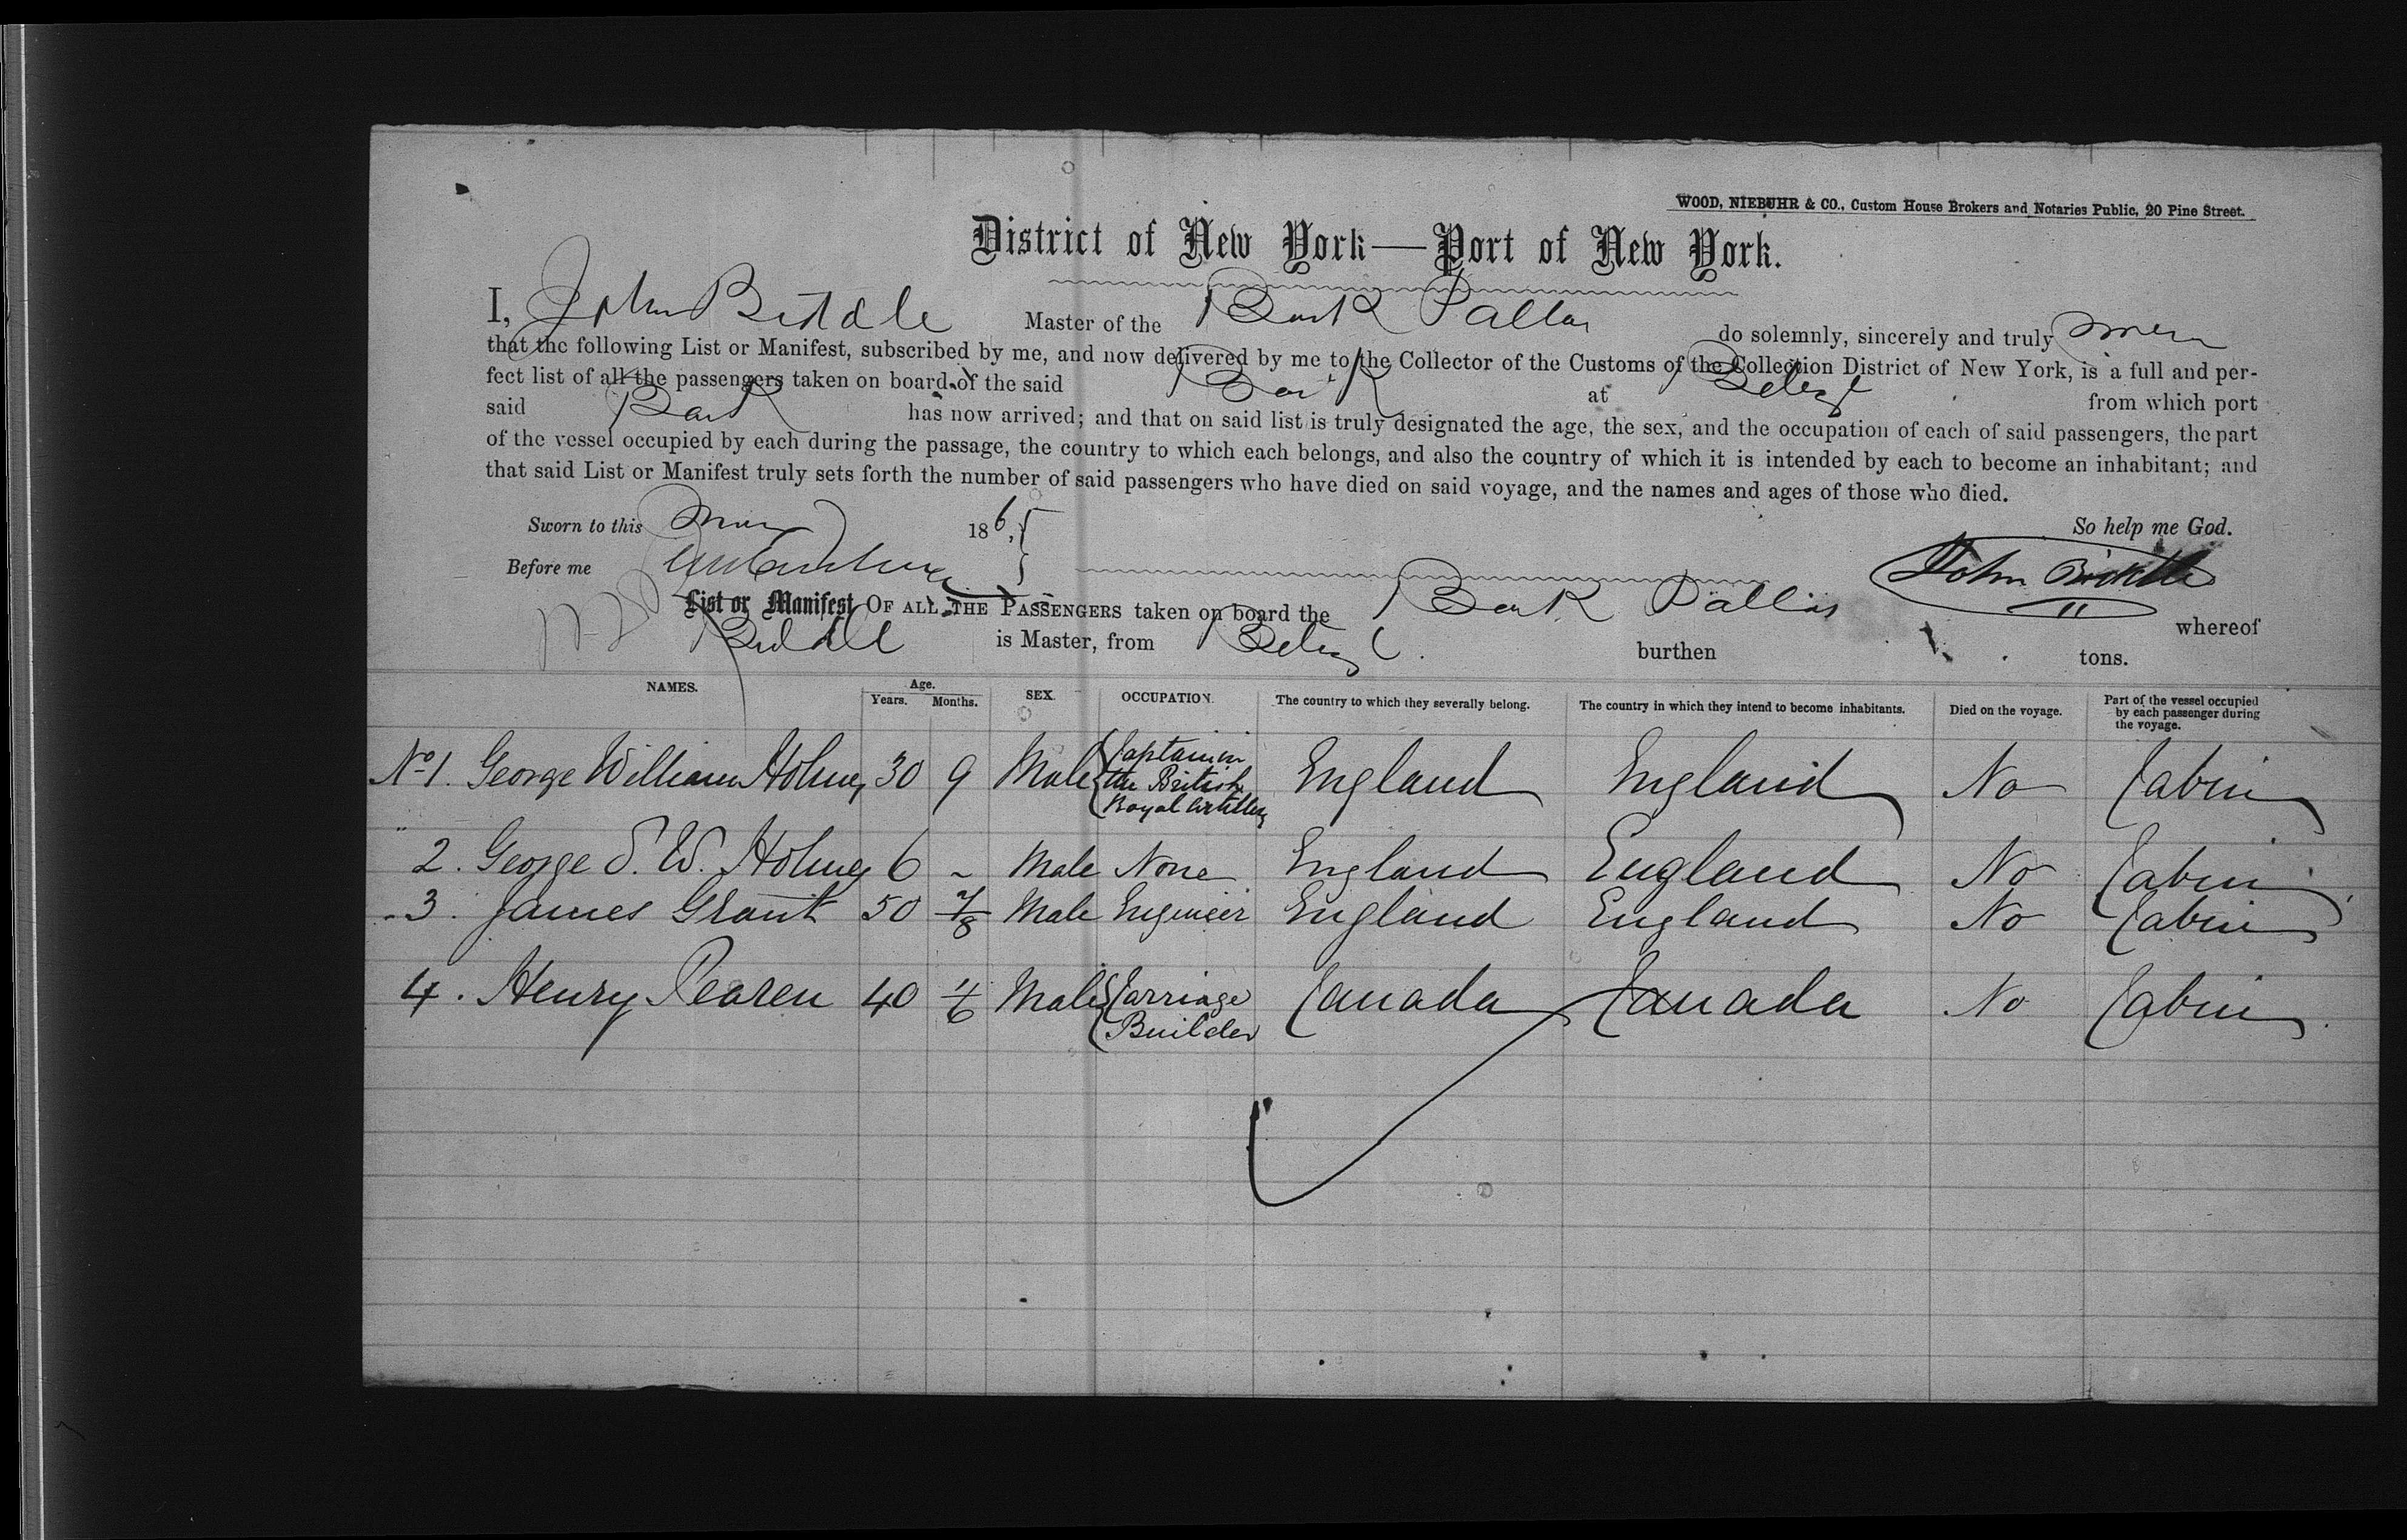 WOOD, NIEBUHR & CO., Custom House Brokers and Notaries Public, 20 Pine Street.
District of New York—Port of New York.
I, John Biddle Master of the Bark Pallas do solemnly, sincerely and truly swear
that the following List or Manifest, subscribed by me, and now delivered by me to the Collector of the Customs of the Collection District of New York, is a full and per-
fect list of all the passengers taken on board of the said Bark at Belize from which port
said Bark has now arrived; and that on said list is truly designated the age, the sex, and the occupation of each of said passengers, the part
of the vessel occupied by each during the passage, the country to which each belongs, and also the country of which it is intended by each to become an inhabitant; and
that said List or Manifest truly sets forth the number of said passengers who have died on said voyage, and the names and ages of those who died.
Sworn to this 186 So help me God.
Before me John
List or Manifest OF ALL THE PASSENGERS taken on board the Bark Pallas whereof
Biddle is Master, from Belize burthen tons.
NAMES. Age. Years. Months. SEX. OCCUPATION. The country to which they severally belong. The country in which they intend to become inhabitants. Died on the voyage. Part of the vessel occupied by each passenger during the voyage.
No 1. George William Holmes 30 9 Male Captain in the British Royal Artillery England England No Cabin
" 2. George S. W. Holmes 6 - Male None England England No Cabin
" 3. James Grant 50 Male Engineer England England No Cabin
4. Henry Pearen 40 Male Carriage Builder Canada Canada No Cabin